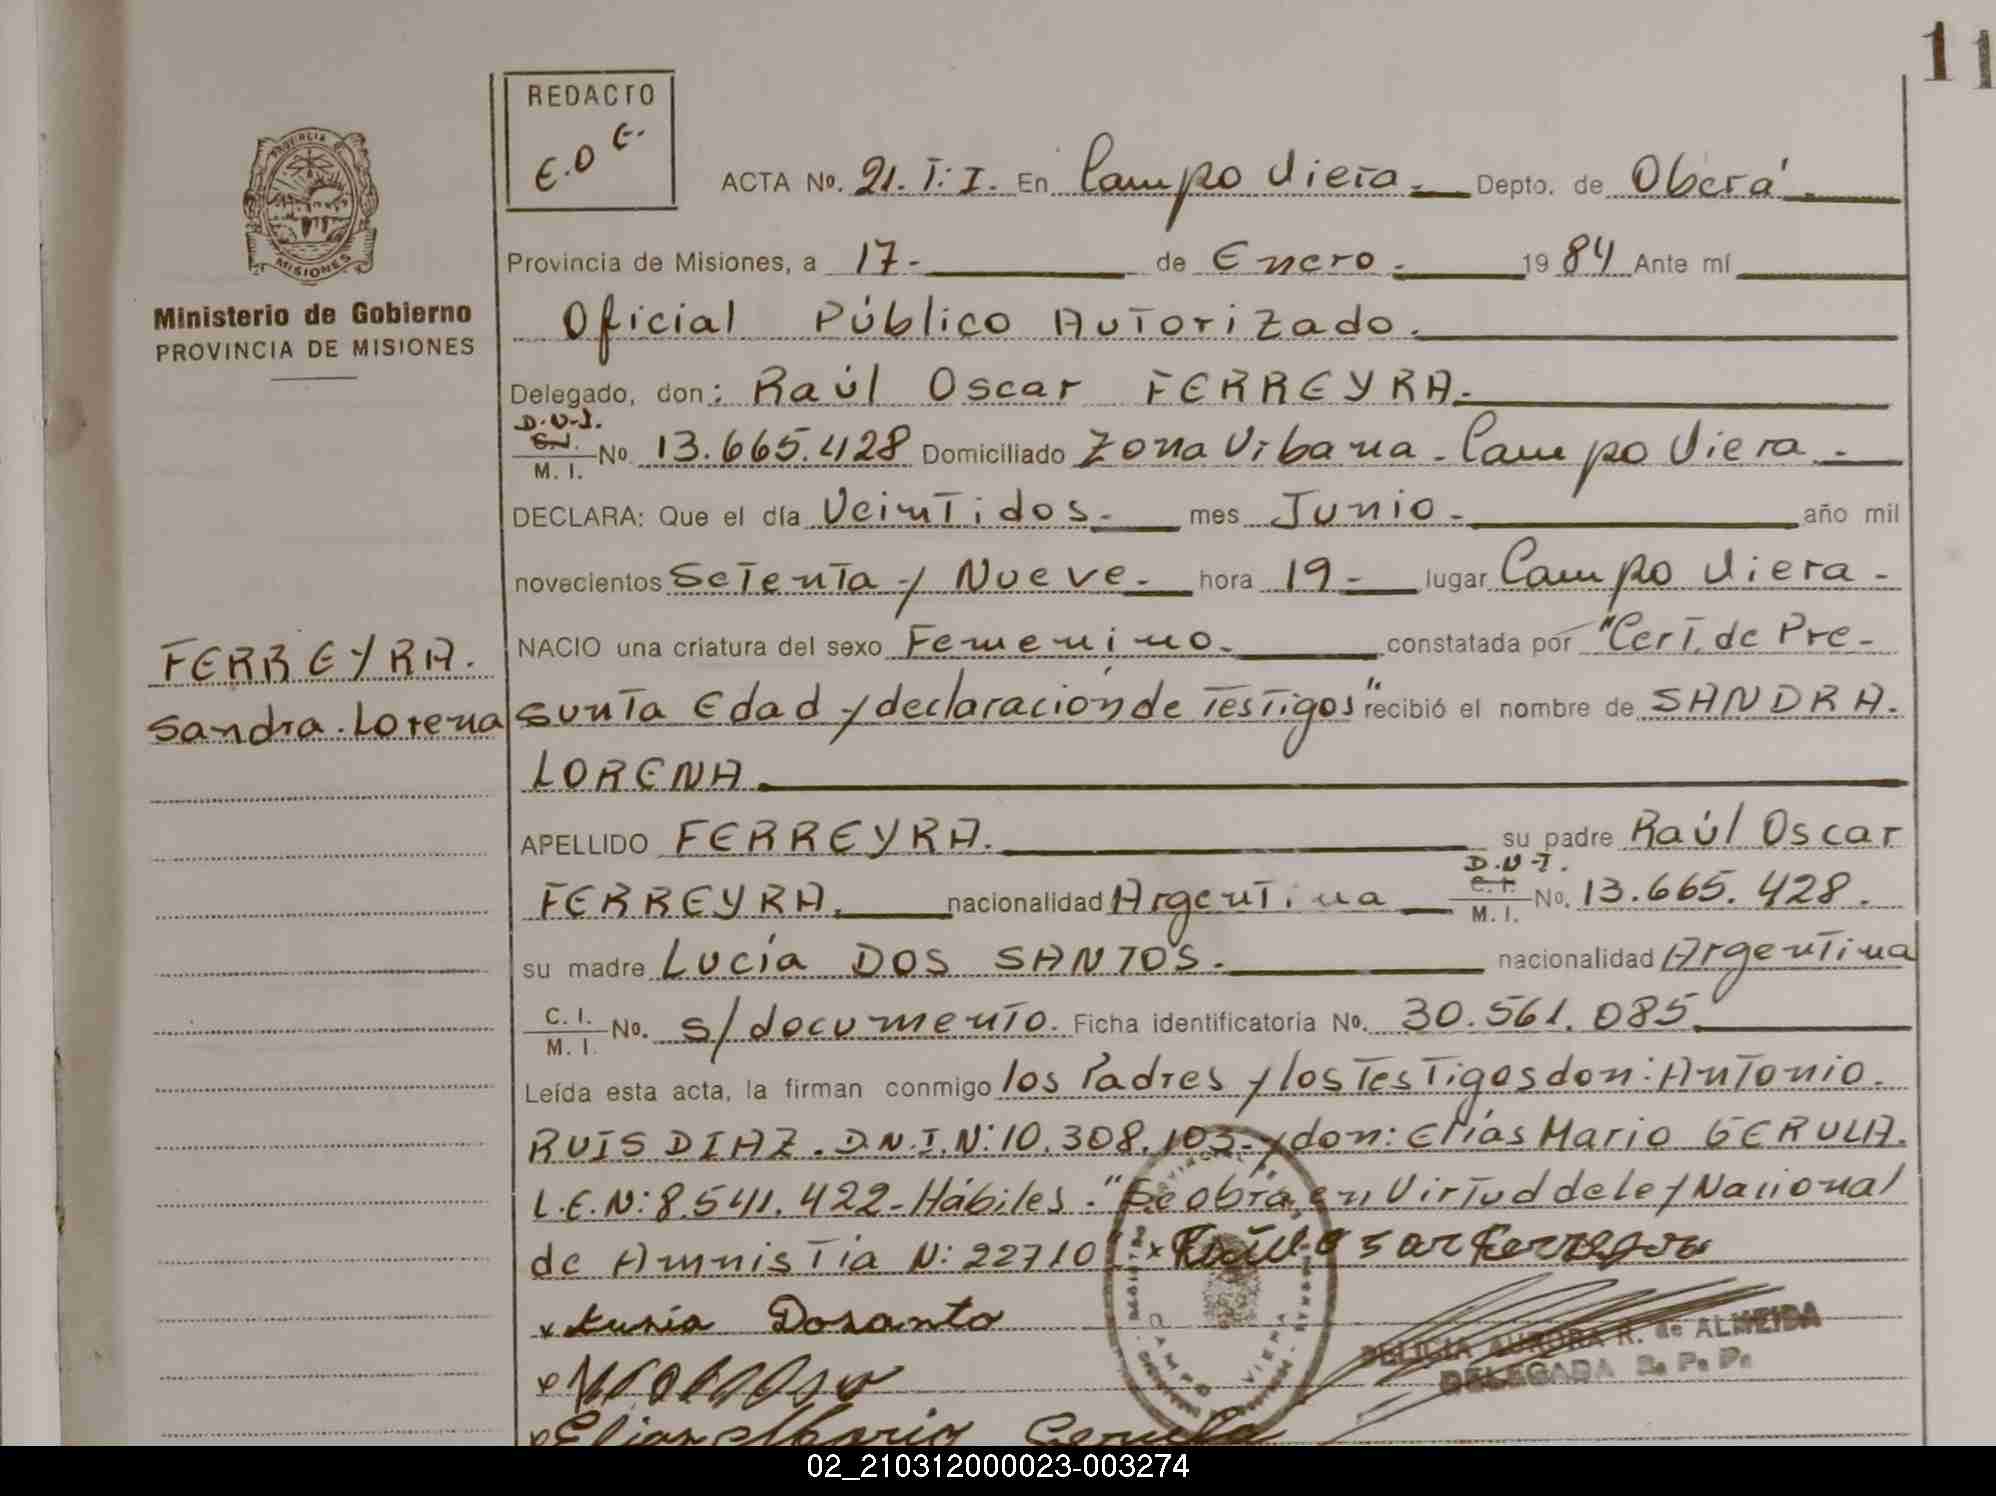 11
REDACTO
E.O E.
PROVINCIA DE
MISIONES
Ministerio de Gobierno
PROVINCIA DE MISIONES
ACTA No. 21. T: I. En Campo Viera. Depto. de Oberá.
Provincia de Misiones, a 17- de Enero. 1984 Ante mí
Oficial Público Autorizado.
Delegado, don: Raúl Oscar FERREYRA.
D.N.I.
C.I.
M. I. No 13.665.428 Domiciliado Zona Urbana. Campo Viera.-
DECLARA: Que el día Veintidos- mes Junio- año mil
novecientos Setenta y Nueve- hora 19- lugar Campo Viera-
FERREYRA.
Sandra. Lorena
NACIO una criatura del sexo Femenino. constatada por "Cert. de Pre-
sunta Edad y declaración de Testigos" recibió el nombre de SANDRA.
LORENA
APELLIDO FERREYRA. su padre Raúl Oscar
D.N.I.
C.I.
FERREYRA. nacionalidad Argentina M. I. No. 13.665.428.
su madre Lucía DOS SANTOS. nacionalidad Argentina
C. I.
M. I. No. s/documento. Ficha identificatoria No. 30.561.085
Leída esta acta, la firman conmigo los Padres y los Testigos don: Antonio.
RUIS DIAZ. D.N.I.N: 10.308.103- y don: Elías Mario GERULA.
L.E.N: 8.541.422- Hábiles-"Se obra en Virtud de ley Nacional
de Amnistía N: 22710" x Raúl Osar Ferreyra
x Lusia Dosanto
DELICIA AURORA R. de ALMEIDA
DELEGADA R. P. P.
CAMPO VIERA
x Elias Mario Gerula
02_210312000023-003274